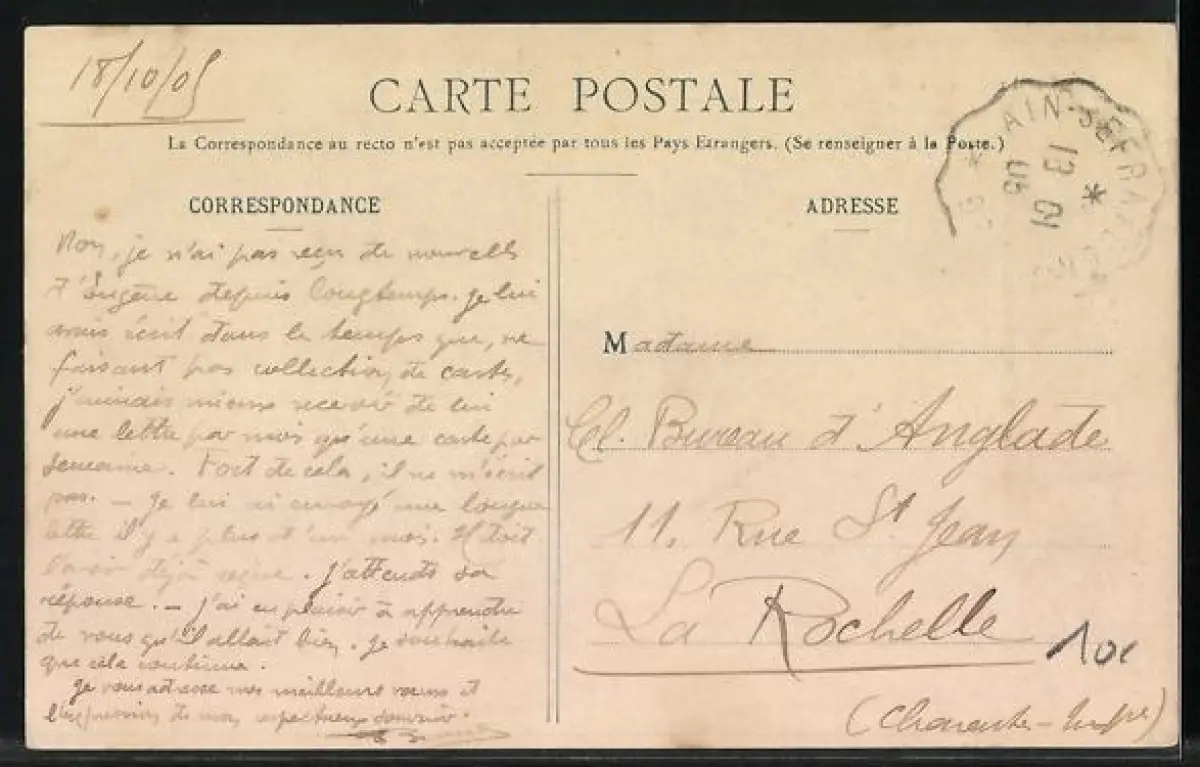 18/10/05
CARTE POSTALE
La Correspondance au recto n'est pas acceptée par tous les Pays Etrangers. (Se renseigner à la Poste.)
CORRESPONDANCE
Non, je n'ai pas reçu de nouvelles
d'Eugène depuis longtemps. Je lui
avais écrit dans le temps que, ne
faisant pas collection de cartes,
j'aimais mieux recevoir de lui
une lettre par mois qu'une carte par
semaine. Fort de cela, il ne m'écrit
pas. – Je lui ai envoyé une longue
lettre il y a plus d'un mois. Il doit
l'avoir déjà reçue. J'attends sa
réponse. – J'ai eu plaisir à apprendre
de vous qu'il allait bien. Je souhaite
que cela continue.
Je vous adresse mes meilleurs vœux et
l'expression de mon respectueux souvenir.
ADRESSE
AIN-SEFRA
13 10
05
Madame
Cl. Bureau d'Anglade
11, Rue St Jean
La Rochelle
(Charente-Infre)